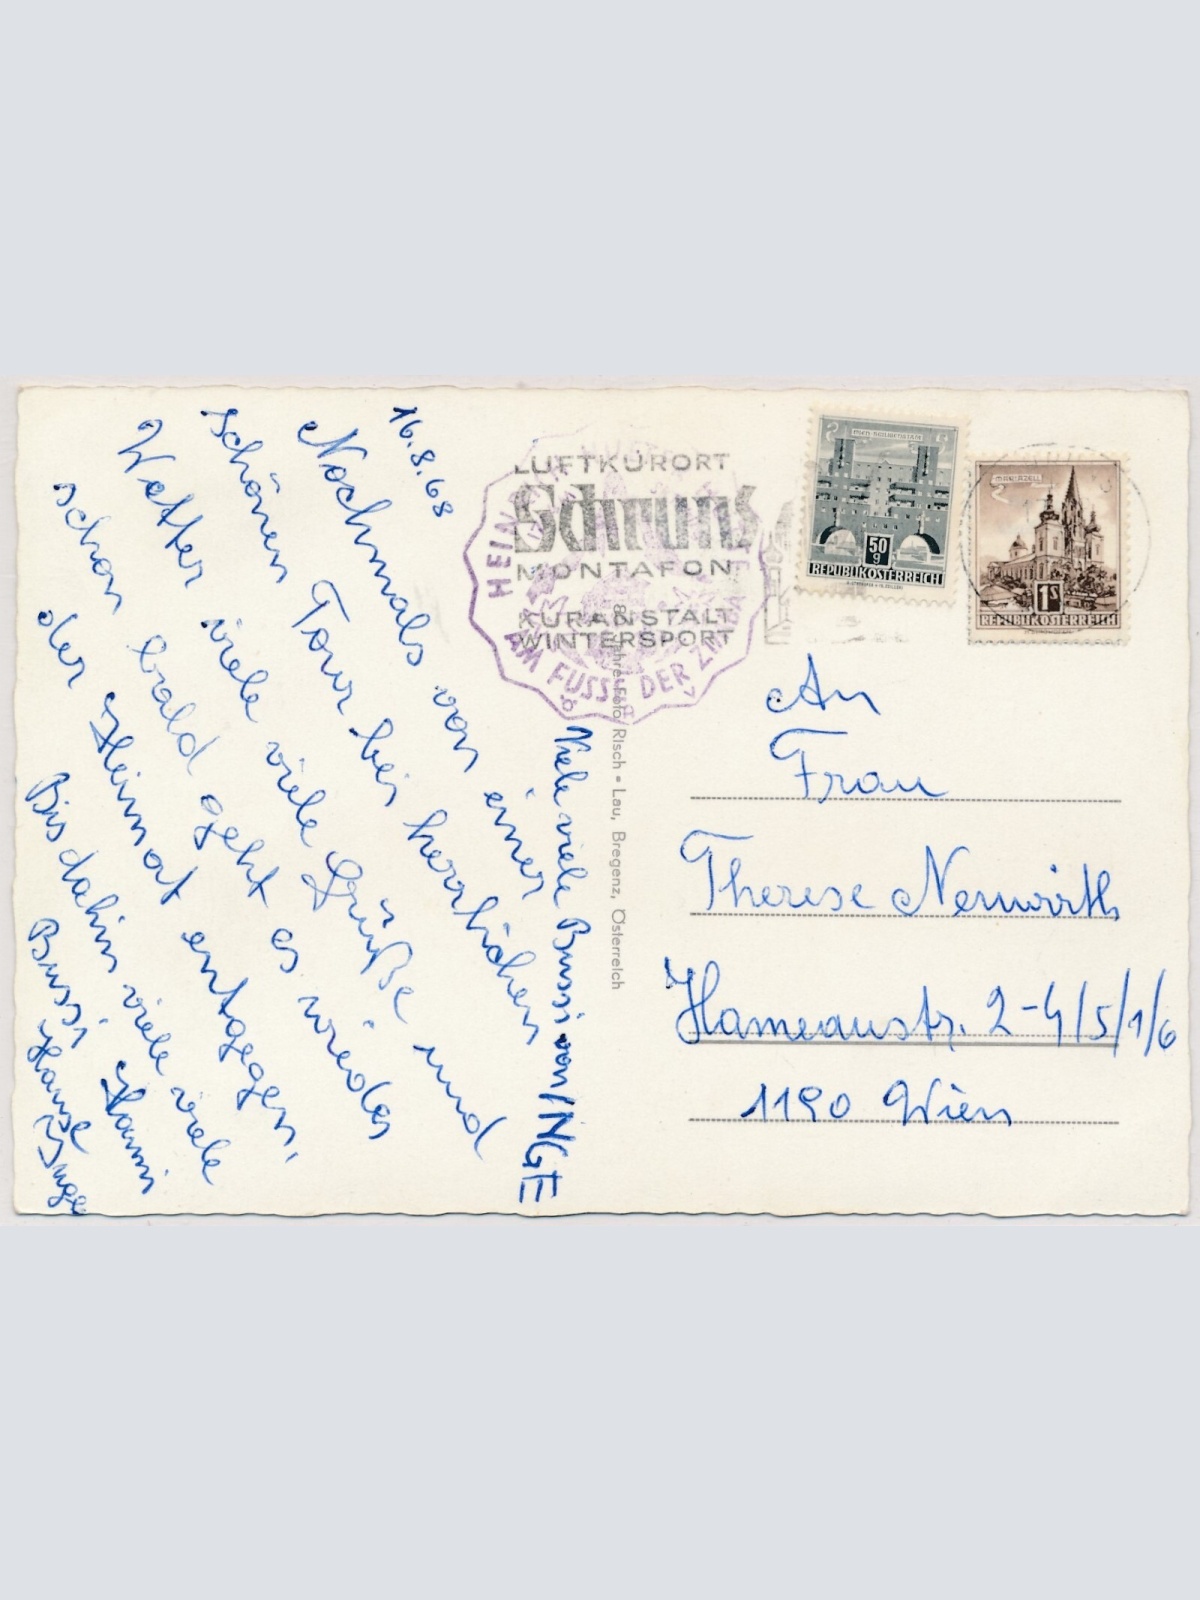 16.8.68
Nochmals von einer
schönen Tour bei herrlichem
Wetter viele viele Grüße und
schon bald geht es wieder
der Heimat entgegen.
Bis dahin viele viele
Bussi Mammi
Hansi
Inge
Viele viele Bussi von INGE
LUFTKURORT
Schruns
MONTAFON
KURANSTALT
WINTERSPORT
AM FUSSE DER
Foto Risch • Lau, Bregenz, Österreich
WIEN-HEILIGENSTADT
50
g
REPUBLIK ÖSTERREICH
MARIAZELL
1 S
REPUBLIK ÖSTERREICH
An
Frau
Therese Nerwirth
Hameaustr. 2-4/5/1/6
1190 Wien